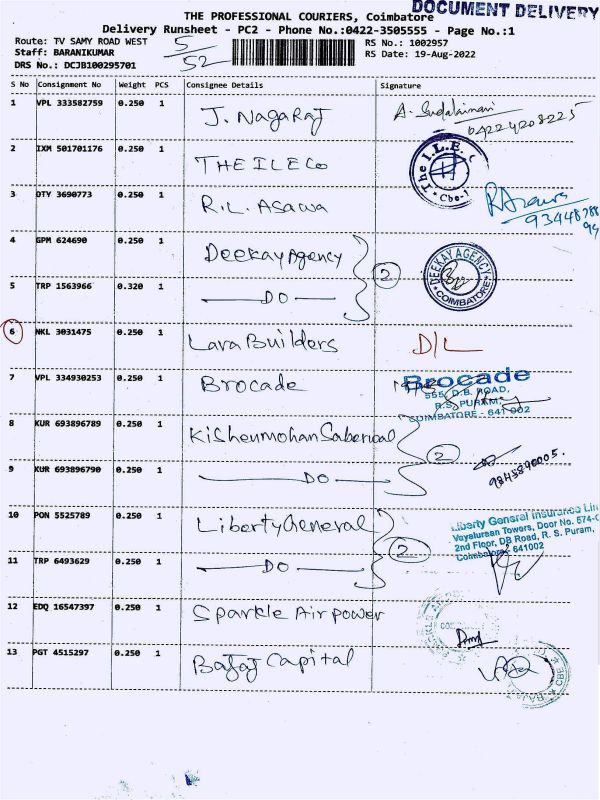 DOCUMENT DELIVERY
THE PROFESSIONAL COURIERS, Coimbatore
Delivery Runsheet - PC2 - Phone No.:0422-3505555 - Page No.:1
Route: TV SAMY ROAD WEST 5/52 RS No.: 1002957
Staff: BARANIKUMAR RS Date: 19-Aug-2022
DRS No.: DCJB100295701
S No Consignment No Weight PCS Consignee Details Signature
1 VPL 333582759 0.250 1 J. Nagaraj A. Sudalaimani
04224208225
2 IXM 501701176 0.250 1 THE ILE Co The I.L.E. Cbe-1
3 DTY 3690773 0.250 1 R.L. Asawa
4 GPM 624690 0.250 1 Deekay Agency 2 DEEKAY AGENCY COIMBATORE
5 TRP 1563966 0.320 1 DO
6 NKL 3031475 0.250 1 Lara Builders D/L
7 VPL 334930253 0.250 1 Brocade Brocade
555, D.B. ROAD,
R.S. PURAM,
COIMBATORE - 641 002
8 KUR 693896789 0.250 1 2
9 KUR 693896790 0.250 1 DO 9843890005.
10 PON 5525789 0.250 1 Liberty General 2 Liberty General Insurance Lim
Towers, Door No. 574-
2nd Floor, DB Road, R. S. Puram,
Coimbatore 641002
11 TRP 6493629 0.250 1 DO
12 EDQ 16547397 0.250 1 Sparkle Air power
13 PGT 4515297 0.250 1 Bajaj Capital